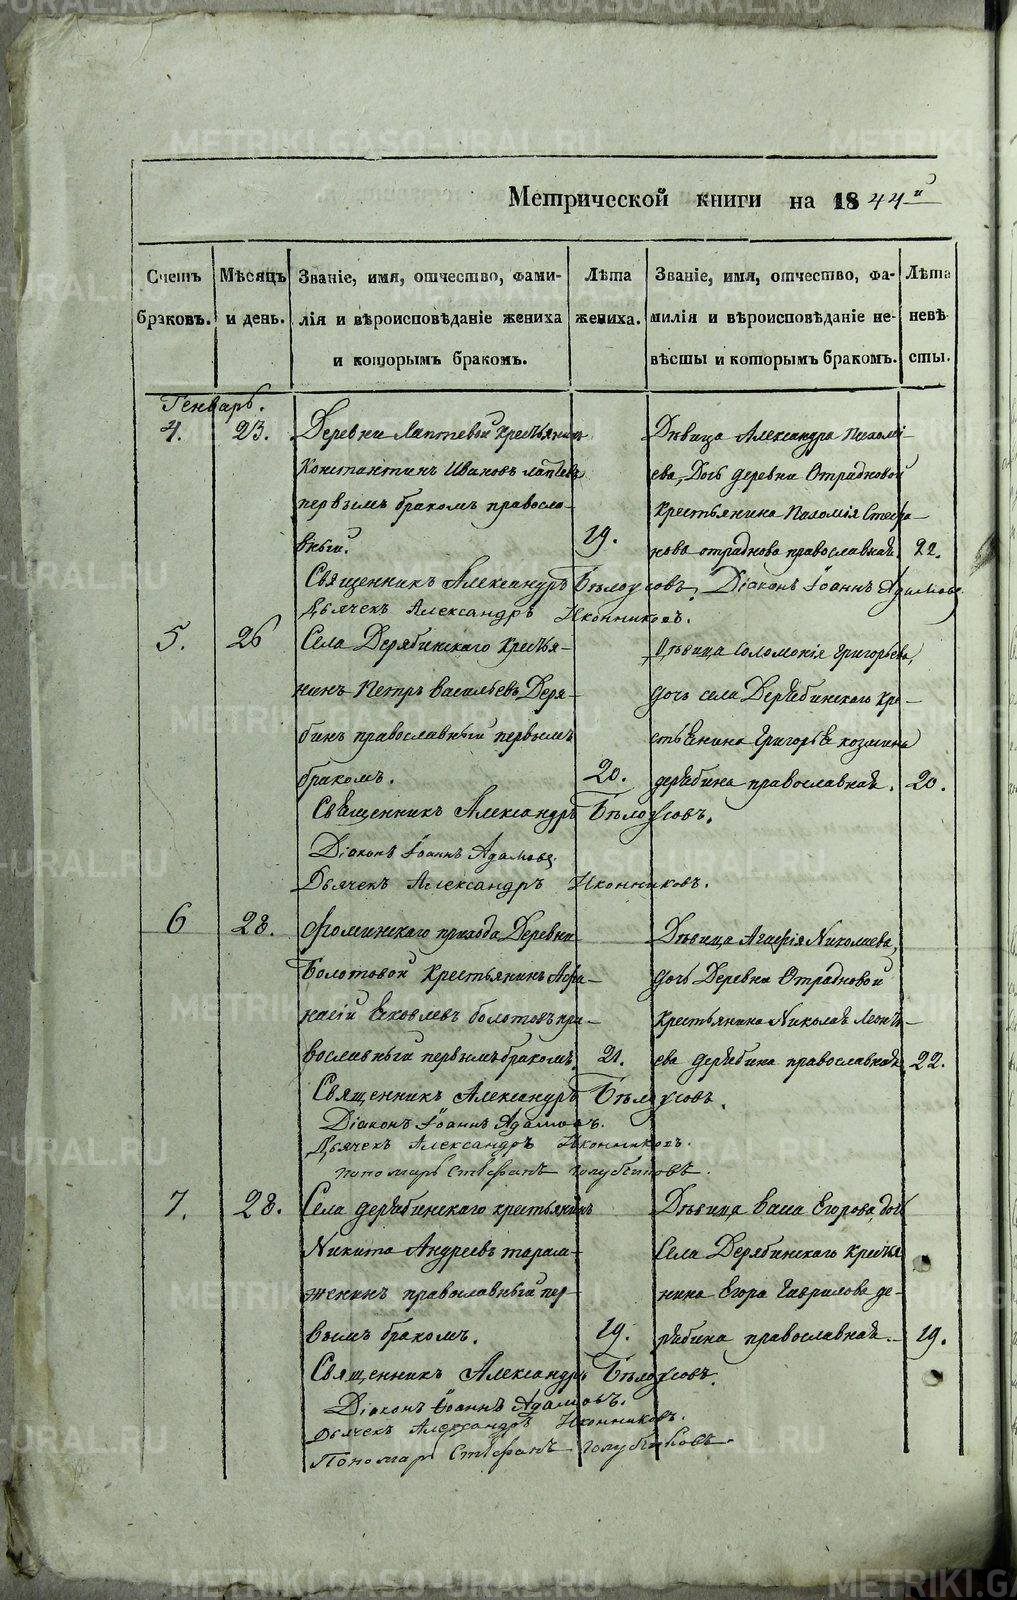 METRIKI.GASO-URAL.RU
Метрической книги на 1844й
Счетъ браковъ.
Мѣсяцъ и день.
Званіе, имя, отчество, фами-
лія и вѣроисповѣданіе жениха
и которымъ бракомъ.
Лѣта жениха.
Званіе, имя, отчество, фа-
милія и вѣроисповѣданіе не-
вѣсты и которымъ бракомъ.
Лѣта невѣсты.
Генварь.
4.
23.
Деревни Лаптевой крестьянинъ
Константинъ Ивановъ лаптевъ
первымъ бракомъ правосла-
вный.
19.
Дѣвица Александра Пахомі-
ева, Дочь деревни Отрадновой
крестьянина Пахомія Стефа-
нова отраднова православная.
22.
Священникъ Александръ Бѣлоусовъ. Діаконъ Іоаннъ Адамовъ
Дьячекъ Александръ Иконниковъ.
5.
26
Села Дерябинскаго крестья-
нинъ Петръ васильевъ Деря-
бинъ православный первымъ
бракомъ.
20.
Дѣвица Соломонія Григорьева,
дочь села Дерябинскаго кре-
стьянина Григорья козмина
дерябина православная.
20.
Священникъ Александръ Бѣлоусовъ.
Діаконъ Іоаннъ Адамовъ
Дьячекъ Александръ Иконниковъ.
6
28.
Фоминскаго прихода Деревни
Болотовой крестьянинъ Афа-
насій Яковлевъ болотовъ пра-
вославный первымъ бракомъ,
21.
Дѣвица Агафія Николаева,
дочь Деревни Отрадновой
крестьянина Николая Леонть-
ева дерябина православная
22.
Священникъ Александръ Бѣлоусовъ.
Діаконъ Іоаннъ Адамовъ.
Дьячекъ Александръ Иконниковъ.
пономарь Стефанъ голубчиковъ.
7.
28.
Села дерябинскаго крестьянинъ
Никита Андреевъ
женинъ православный пер-
вымъ бракомъ.
19.
Дѣвица Васса Егорова, дочь
Села Дерябинскаго крестья
нина Егора Гаврилова де-
рябина православная.
19.
Священникъ Александръ Бѣлоусовъ.
Діаконъ Іоаннъ Адамовъ.
Дьячекъ Александръ Иконниковъ.
Пономарь Стефанъ голубчиковъ.